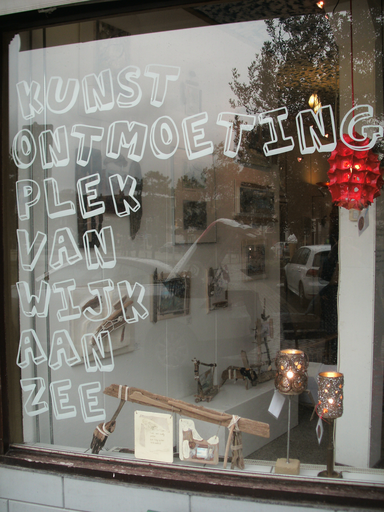 KUNST
ONTMOETING
PLEK
VAN
WIJK
AAN
ZEE